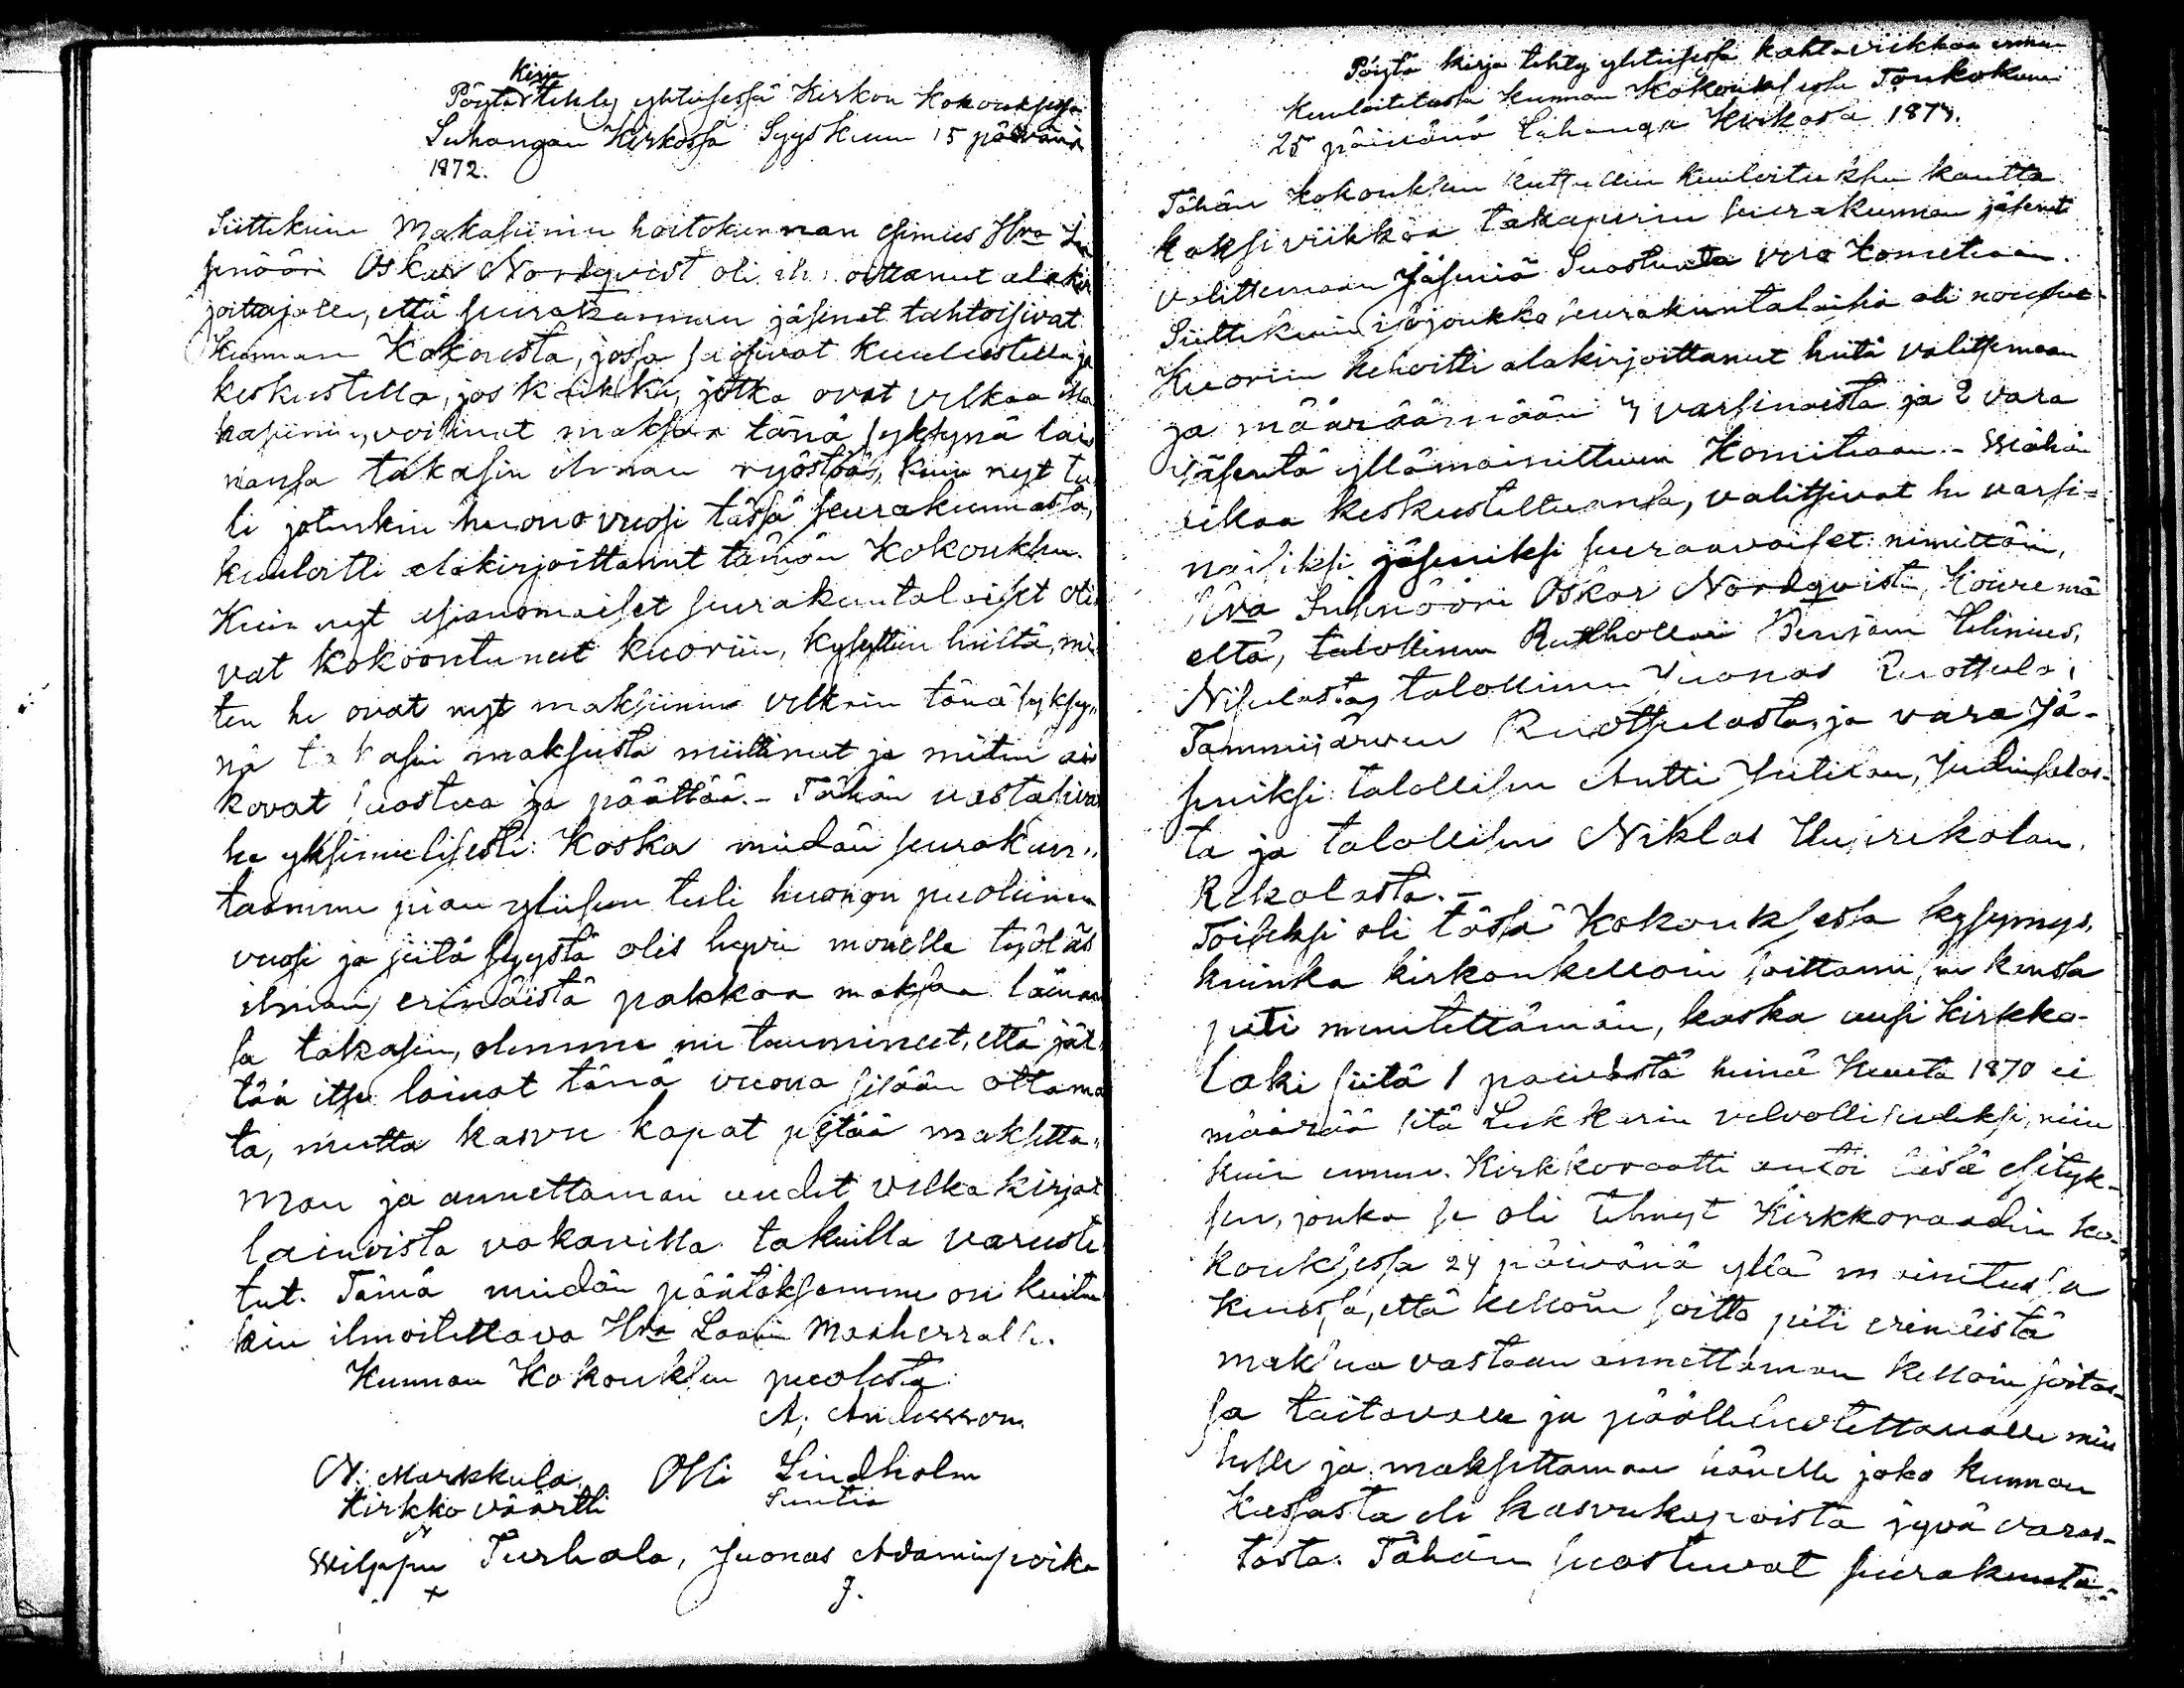 Kirja
Pöytä tehty yhteisessä Kirkon Kokouksessa
Luhangan Kirkossa Syyskuun 15 päivänä
1872.
Siittekuin Makasiinin hoitokunnan esimies Hra In
sinööri Oskar Nordqvist oli ilmoittanut alakir
joittajalle, että seurakunnan jäsenet tahtoisivat
Kunnan Kokousta, jossa saisivat kuulustella ja
keskustella, jos kaikki, jotka ovat velkaa Ma
kasiiniin, voisivat maksaa tänä syksynä lai
nansa takasin ilman ryöstöä, kuin nyt tu
li jotenkin huono vuosi tässä seurakunnassa,
kuuloitti alakirjoittanut tämän Kokouksen.
Kuin nyt asianomaiset seurakuntalaiset oli
vat kokoontuneet kuoriin, kysyttiin heiltä, mi
ten he ovat nyt makasiinin velkain tänä syksy„
nä takasin maksusta miettineet ja miten ai
kovat suostua ja päättää. - Tähän vastasivat
he yksimielisesti: Koska meidän seurakun„
taamme pian yleiseen tuli huonon puolinen
vuosi ja siitä syystä olis hyvin monelle työläs
ilman erinäistä pakkoa maksaa lainan
sa takasin, olemme me tuumineet, että jät
tää itse lainat tänä vuona sisään ottama
ta, mutta kasvu kapat pitää maksetta„
man ja annettaman uudet velka kirjat
lainoista vakavilla takuilla varuste
tut. Tämä meidän päätöksemme on kuiten
kin ilmoitettava Hra Läänin Maaherralle.
Kunnan Kokouksen puolesta
A. Andersson.
N. Markkula Olli Lindholm
Kirkko väärtti Suntio
Wilppu Turhala, Juonas Adaminpoika
x J.
Pöytä kirja tehty yhteisessä kahta viikkoa ennen
Kuuloitetussa kunnan Kokouksessa Toukokuun
25 päivänä Luhangan Kirkossa 1873.
Tähän kokouksen kutsuttiin kuuloituksen kautta
kaksi viikkoa takaperin seurakunnan jäsenet
valittemaan Jäseniä Suostunta vero Kometeaan.
Siittekuin isojoukko seurakuntalaisia oli noussut
Kuoriin kehoitti alakirjoittanut heitä valitsemaan
ja määräämään 4 varsinaista ja 2 vara
jäsentä yllämainittuun Komiteaan. - Wähän
aikaa keskusteltuansa, valitsivat he varsi=
naisiksi jäseniksi seuraavaiset: nimittäin,
Hra Insinööri Oskar Nordqvistin, Koivumä
eltä, talollisen Rusthollari Benjam Helenius,
Nisulasta, talollinen Juonas Ruottula,
Tammijärven Ruottulasta, ja vara Jä-
seniksi: talollisen Antti Jutilan, Judinsalos-
ta ja talollisen Niklas Uusirekolan.
Rekolasta. -
Toiseksi oli tässä Kokouksessa kysymys,
kuinka kirkonkelloin soittamisen kanssa
piti meneteltämän, koska uusi kirkko-
laki siitä 1 päivästä heinä Kuuta 1870 ei
määrää sitä Lukkarin velvollisuudeksi, niin
kuin ennen. Kirkkoraatti antoi tässä esityk-
sen, jonka se oli tehnyt Kirkkoraadin ko-
kouksessa 24 päivänä yllä mainitussa
kuussa, että kelloin soitto piti erinäistä
maksua vastaan annettaman kelloin soitos-
sa taitavalle ja päälleluotettavalle mie
helle ja maksettaman hänelle joko kunnan
Kassasta eli kasvukapoista jyvä varas-
tosta. Tähän suostuvat seurakunta=